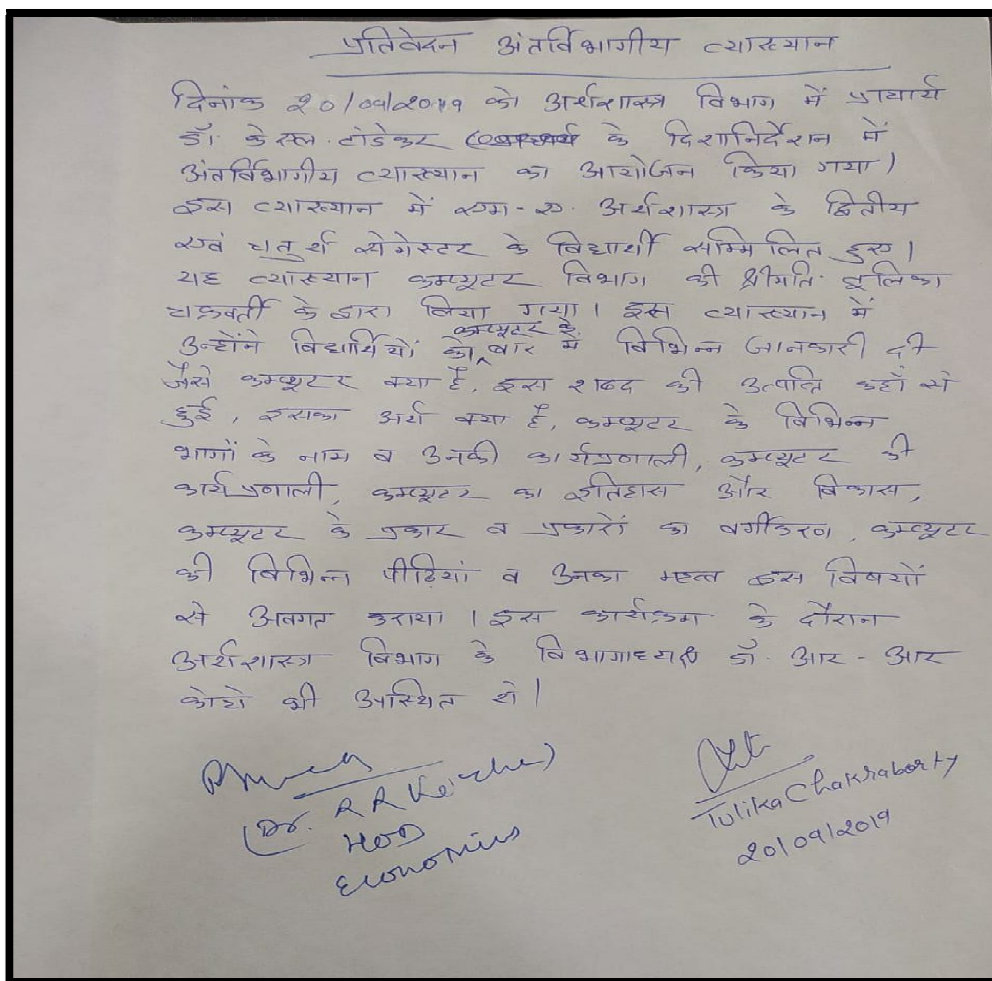 प्रतिवेदन अंतर्विभागीय व्याख्यान
दिनांक 20/09/2019 को अर्थशास्त्र विभाग में प्राचार्य
डॉ. के एल. टांडेकर के दिशानिर्देशन में
अंतर्विभागीय व्याख्यान का आयोजन किया गया।
इस व्याख्यान में एम-ए. अर्थशास्त्र के द्वितीय
एवं चतुर्थ सेमेस्टर के विद्यार्थी सम्मिलित हुए।
यह व्याख्यान कम्प्यूटर विभाग की श्रीमति तूलिका
चक्रवर्ती के द्वारा दिया गया। इस व्याख्यान में
उन्होंने विद्यार्थियों को कम्प्यूटर के बारे में विभिन्न जानकारी दी
जैसे कम्प्यूटर क्या है, इस शब्द की उत्पत्ति कहाँ से
हुई, इसका अर्थ क्या है, कम्प्यूटर के विभिन्न
भागों के नाम व उनकी कार्यप्रणाली, कम्प्यूटर की
कार्यप्रणाली, कम्प्यूटर का इतिहास और विकास,
कम्प्यूटर के प्रकार व प्रकारों का वर्गीकरण, कम्प्यूटर
की विभिन्न पीढ़ियां व उनका महत्व इस विषयों
से अवगत कराया। इस कार्यक्रम के दौरान
अर्थशास्त्र विभाग के विभागाध्यक्ष डॉ. आर - आर
कोचे भी उपस्थित थे।
(Dr. R R Koche)
HOD
Economics
Tulika Chakraborty
20/09/2019